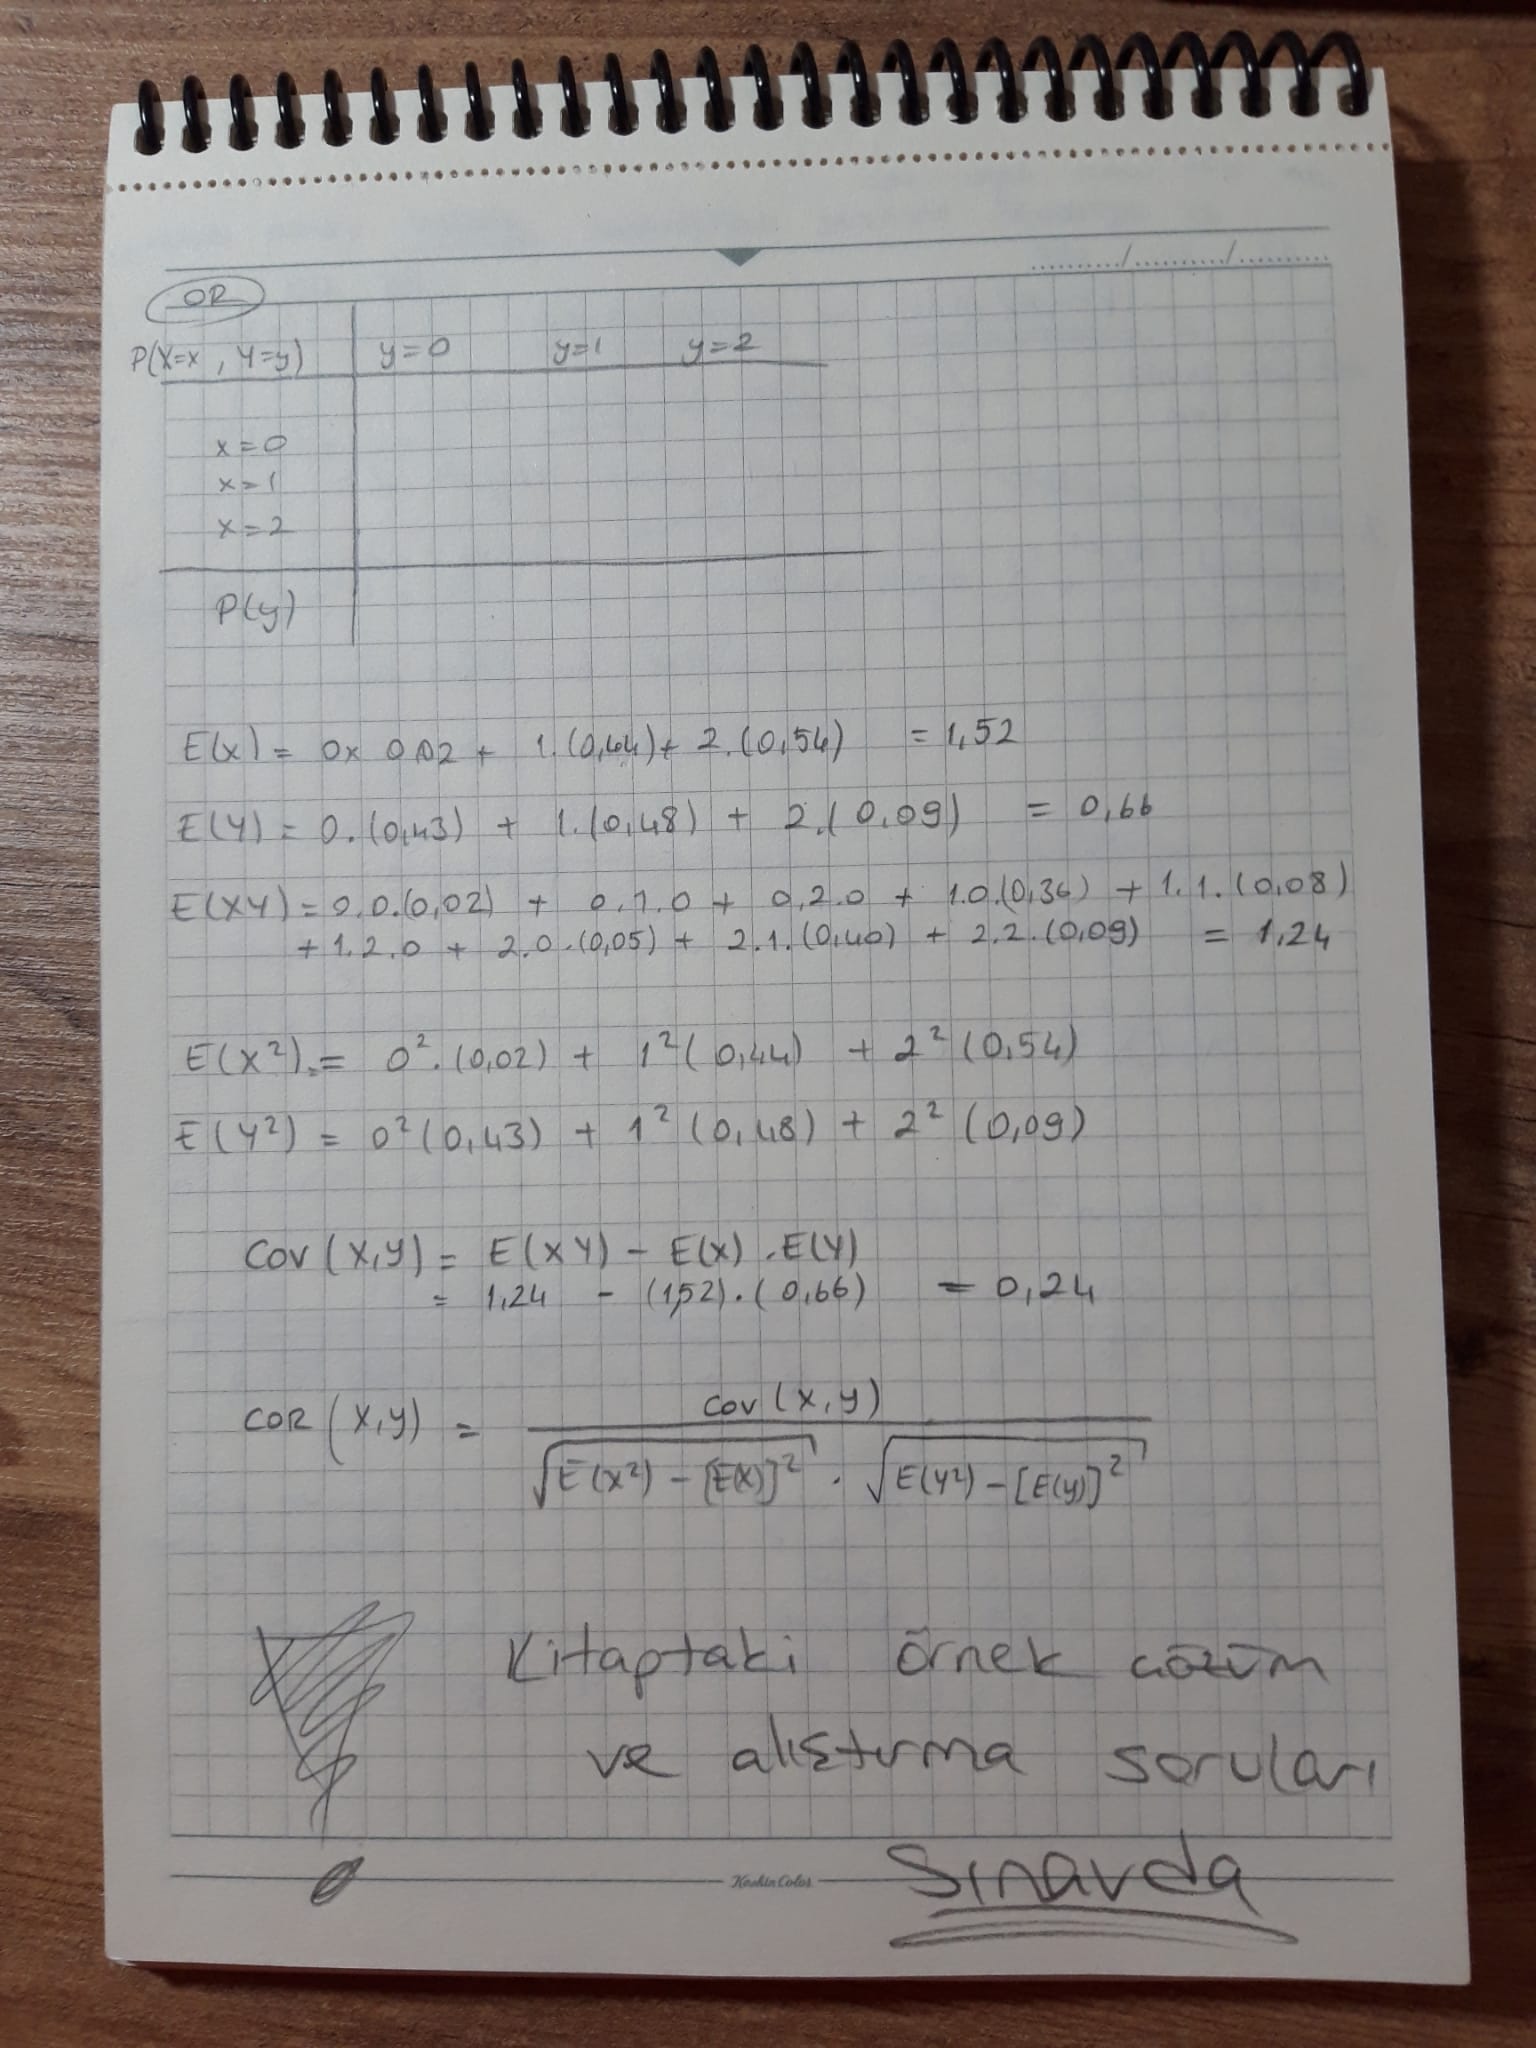 OR
P(X=x , Y=y) y=0 y=1 y=2
x=0
x=1
x=2
P(y)
E(X) = 0x 0,02 + 1.(0,44)+ 2.(0,54) = 1,52
E(Y) = 0.(0,43) + 1.(0,48) + 2.(0,09) = 0,66
E(XY) = 0.0.(0,02) + 0.1.0 + 0.2.0 + 1.0.(0,36) + 1.1.(0,08)
+ 1.2.0 + 2.0.(0,05) + 2.1.(0,40) + 2.2.(0,09) = 1,24
E(X²) = 0².(0,02) + 1²(0,44) + 2²(0,54)
E(Y²) = 0²(0,43) + 1²(0,48) + 2²(0,09)
Cov(X,y) = E(XY) - E(X).E(Y)
= 1,24 - (1,52).(0,66) = 0,24
COR(X,y) = Cov(X,y) / √E(X²)-[E(X)]² . √E(Y²)-[E(y)]²
Kitaptaki örnek çözüm
ve alıştırma soruları
Sınavda
Keskin Color